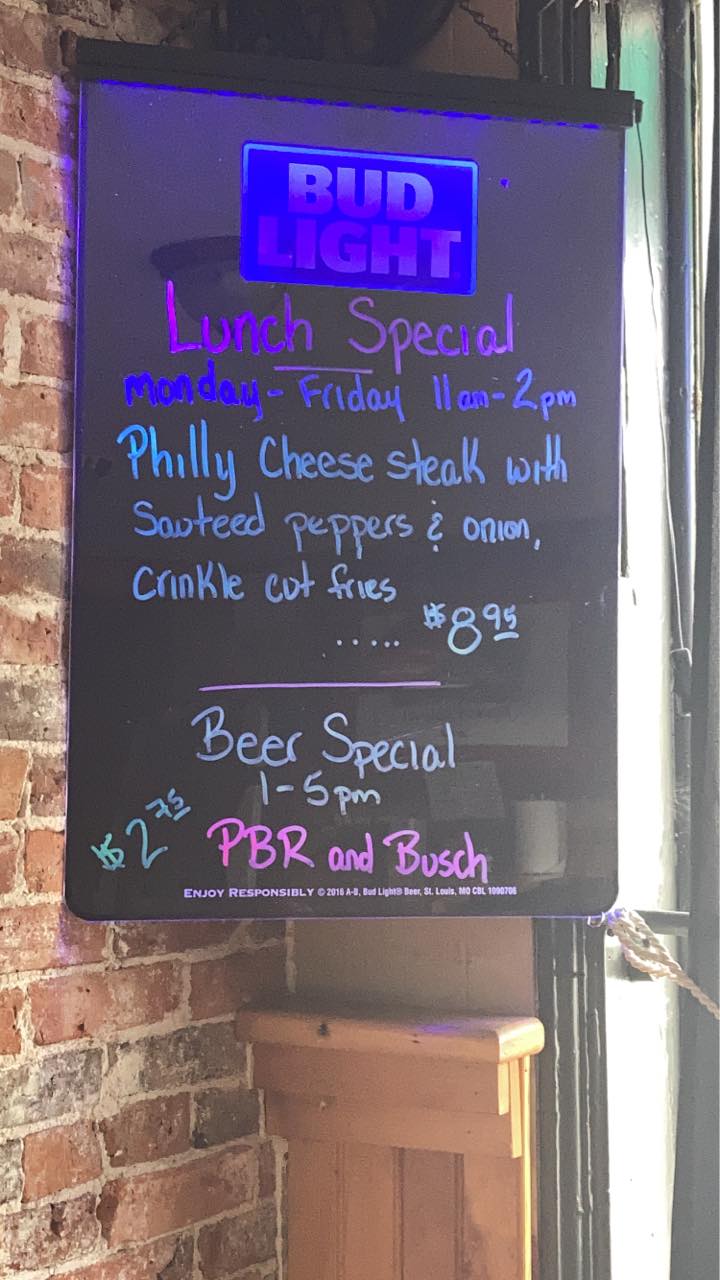 BUD
LIGHT
Lunch Special
Monday - Friday 11am - 2pm
Philly Cheese steak with
Sauteed peppers & onion,
Crinkle cut fries
..... $8.95
Beer Special
1-5pm
$2.75 PBR and Busch
ENJOY RESPONSIBLY © 2016 A-B, Bud Light® Beer, St. Louis, MO CBL 1090706